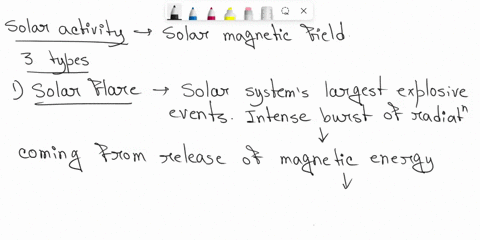 Solar activity → Solar magnetic field
3 types
1) Solar flare → Solar system's largest explosive
events. Intense burst of radiatⁿ
↓
coming from release of magnetic energy
↓